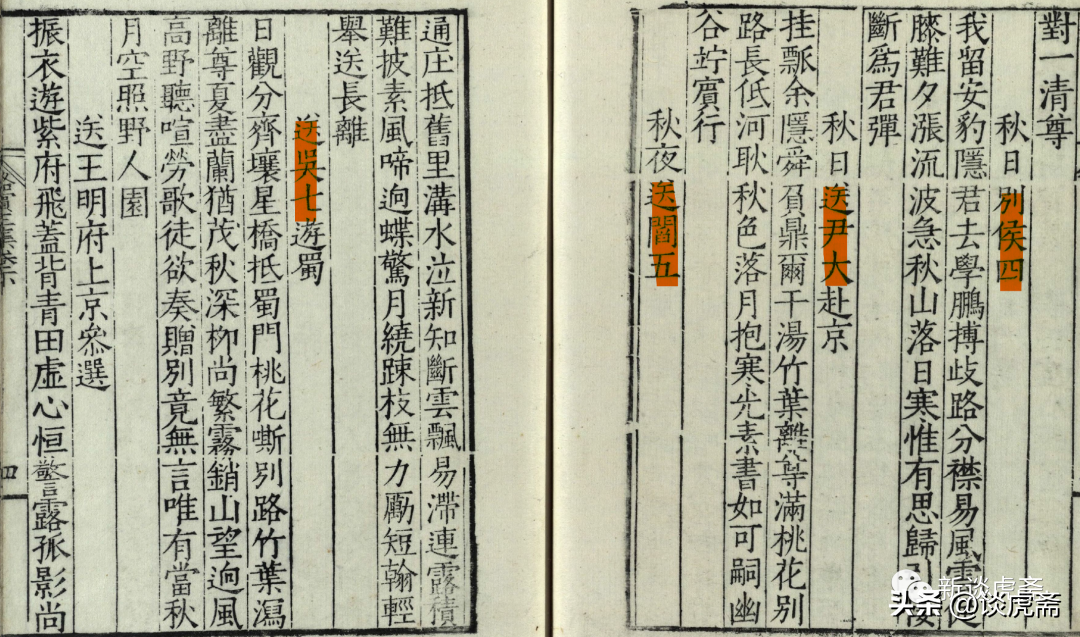 對一清尊
秋日別侯四
我留安豹隱君去學鵬摶歧路分襟易風雲
膝難夕漲流波急秋山落日寒惟有思歸引
斷爲君彈
秋日送尹大赴京
挂瓢余隱舜負鼎爾干湯竹葉離尊滿桃花別
路長低河耿秋色落月抱寒光素書如可嗣幽
谷竚賓行
秋夜送閻五
通庄抵舊里溝水泣新知斷雲飄易滯連露積
難披素風啼迥蝶驚月繞踈枝無力勵短翰輕
舉送長離
送吳七遊蜀
日觀分齊壤星橋抵蜀門桃花嘶別路竹葉瀉
離尊夏盡蘭猶茂秋深栁尚繁霧銷山望迥風
高野聽喧勞歌徒欲奏贈別竟無言唯有當秋
月空照野人園
送王明府上京叅選
振衣遊紫府飛蓋背青田虛心恒警露孤影尚
四
新谈虎斋
头条 @谈虎斋